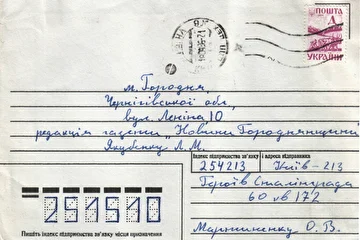 ПОШТА
УКРАЇНИ
м. Городня
Чернігівської обл,
вул. Леніна 10
редакція газети "Новини Городнянщини"
Якубенку Л. М.
Індекс підприємства зв'язку і адреса відправника
254213 Київ-213
Героїв Сталінграда
60 кв 172
Мартиненко О. В.
251510
Пишіть індекс підприємства зв'язку місця призначення